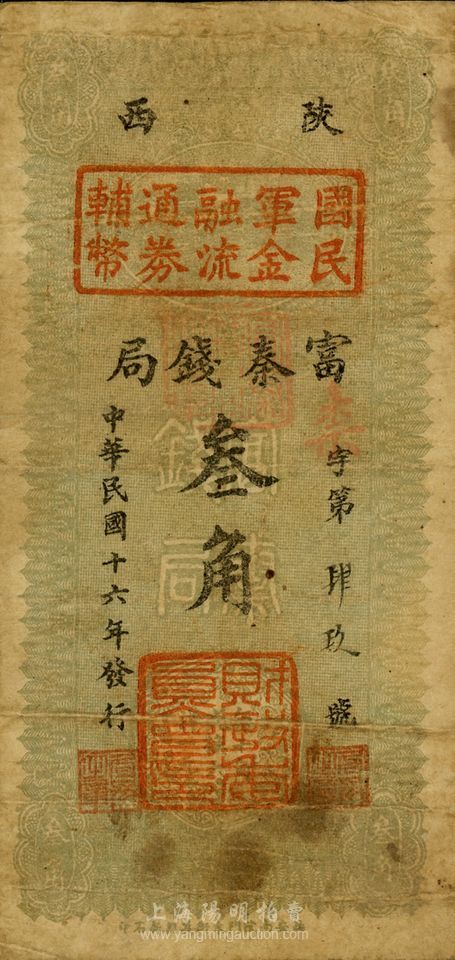 陝西
國民軍金融流通券輔幣
富秦錢局
字第肆玖號
叁角
中華民國十六年發行
上海陽明拍賣
www.yangmingauction.com